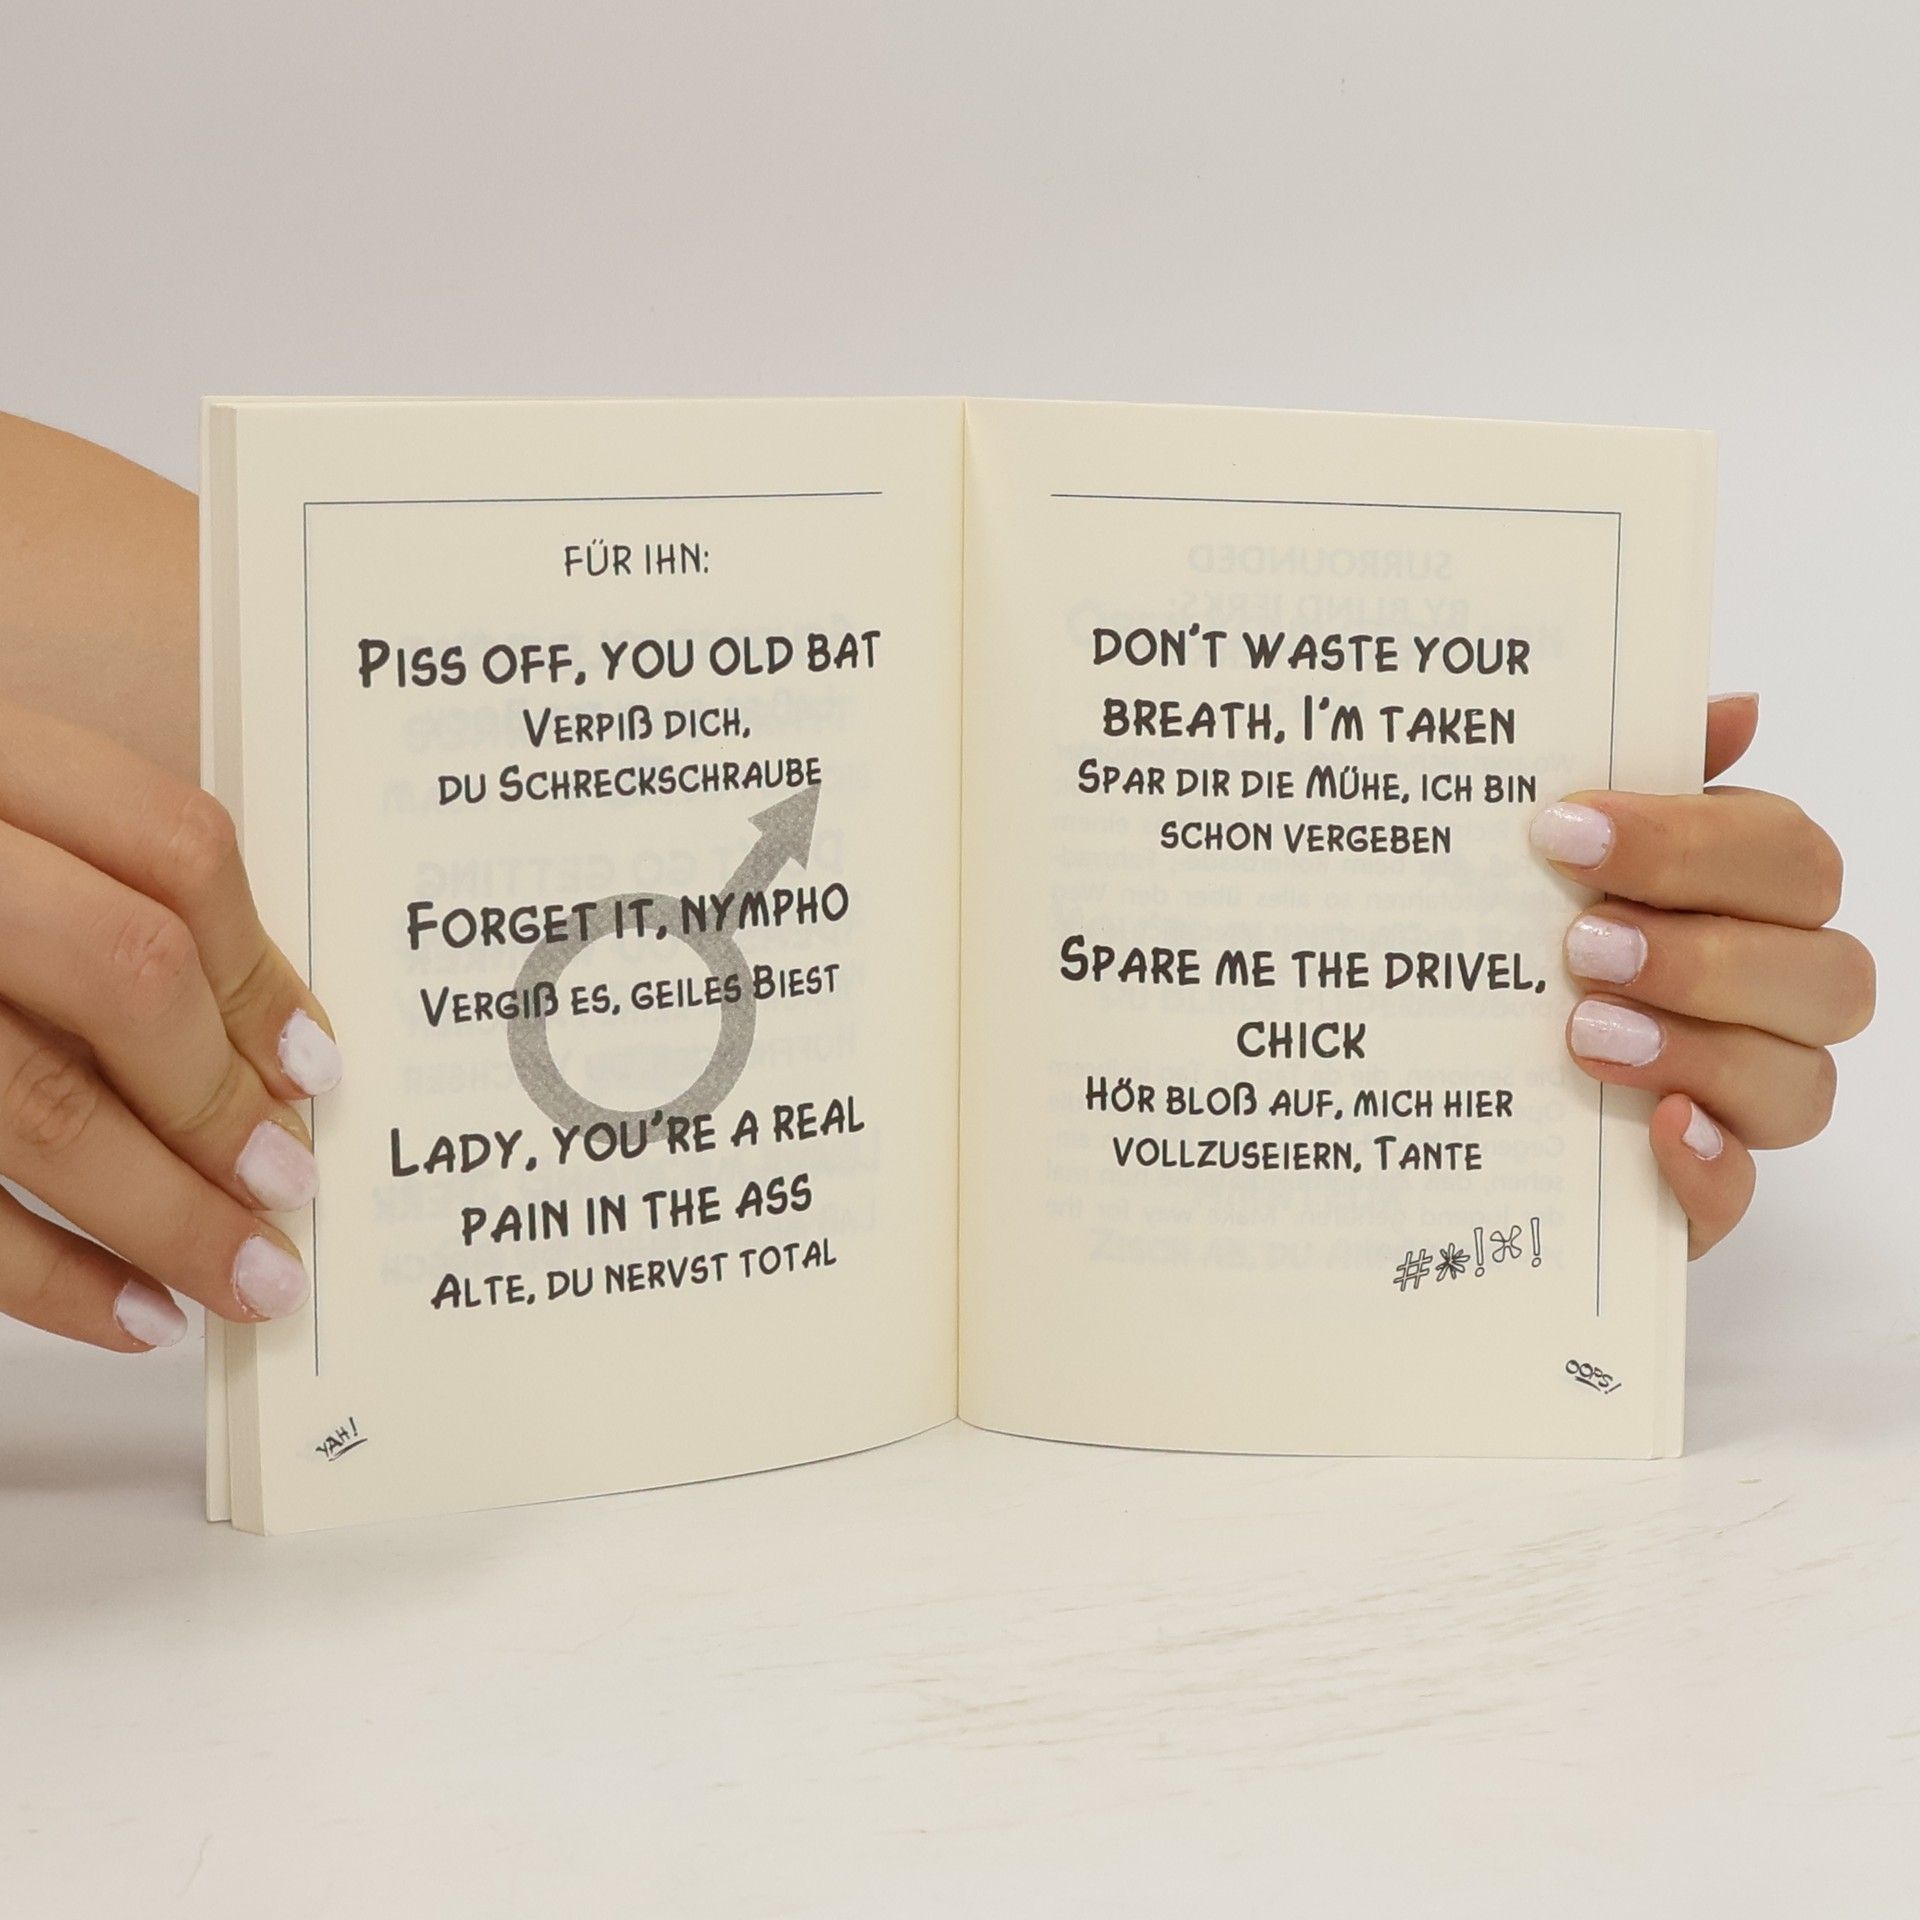 FÜR IHN:
PISS OFF, YOU OLD BAT
VERPIß DICH,
DU SCHRECKSCHRAUBE
FORGET IT, NYMPHO
VERGIß ES, GEILES BIEST
LADY, YOU'RE A REAL
PAIN IN THE ASS
ALTE, DU NERVST TOTAL
YAH!
DON'T WASTE YOUR
BREATH, I'M TAKEN
SPAR DIR DIE MÜHE, ICH BIN
SCHON VERGEBEN
SPARE ME THE DRIVEL,
CHICK
HÖR BLOß AUF, MICH HIER
VOLLZUSEIERN, TANTE
#*!⌘!
OOPS!